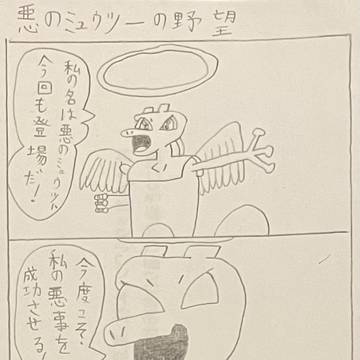 悪のミュウツーの野望
私の名は悪のミュウツー
今回も登場だ!
今度こそ
私の悪事を
成功させる!